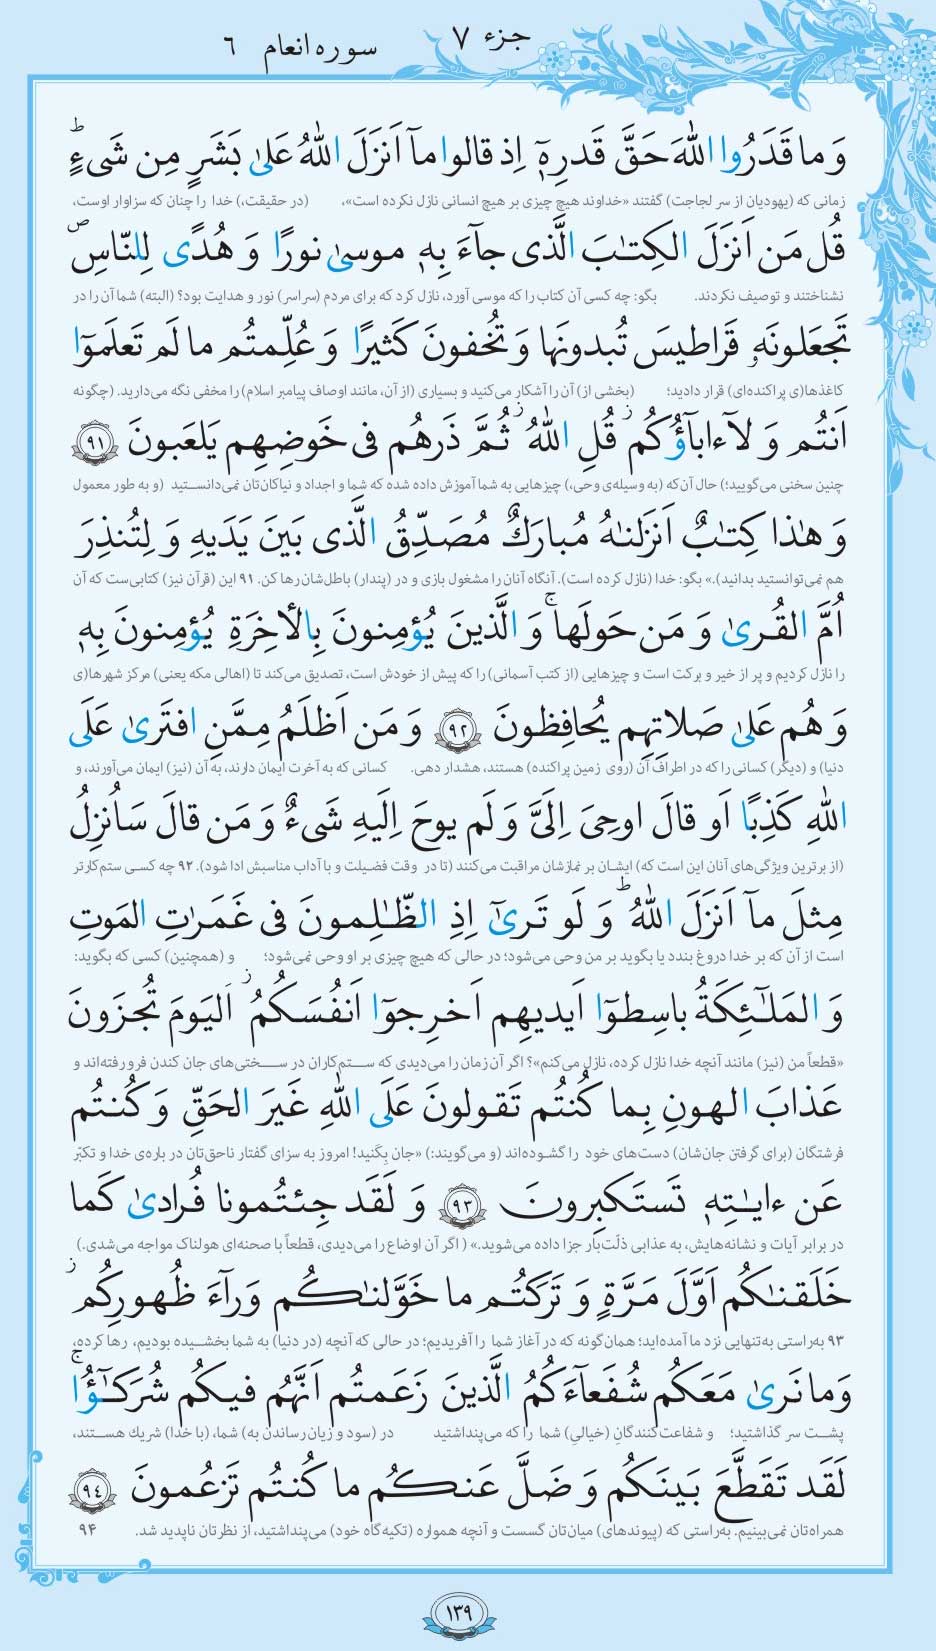 جزء ۷
سوره انعام ۶
وَ ما قَدَرُوا اللّٰهَ حَقَّ قَدرِهٖٓ اِذ قالوا مآ اَنزَلَ اللّٰهُ عَلىٰ بَشَرٍ مِن شَیءٍ ۗ ط
زمانی که (یهودیان از سر لجاجت) گفتند «خداوند هیچ چیزی بر هیچ انسانی نازل نکرده است»، (در حقیقت،) خدا را چنان که سزاوار اوست،
قُل مَن اَنزَلَ الكِتٰبَ الَّذی جآءَ بِهٖ موسىٰ نورًا وَ هُدًى لِلنّاسِ ص
نشناختند و توصیف نکردند. بگو: چه کسی آن کتاب را که موسی آورد، نازل کرد که برای مردم (سراسر) نور و هدایت بود؟ (البته) شما آن را در
تَجعَلونَهٗ قَراطیسَ تُبدونَها وَ تُخفونَ كَثیرًا وَ عُلِّمتُم ما لَم تَعلَموٓا
کاغذها(ی پراکنده‌ای) قرار دادید؛ (بخشی از) آن را آشکار می‌کنید و بسیاری (از آن، مانند اوصاف پیامبر اسلام) را مخفی نگه می‌دارید. (چگونه
اَنتُم وَ لآ ءابآؤُكُم ز قُلِ اللّٰهُ ز ثُمَّ ذَرهُم فی خَوضِهِم یَلعَبونَ ﴿۹۱﴾
چنین سخنی می‌گویید؛) حال آن‌که (به وسیله‌ی وحی،) چیزهایی به شما آموزش داده شده که شما و اجداد و نیاکان‌تان نمی‌دانستید (و به طور معمول
وَ هٰذا كِتٰبٌ اَنزَلنٰهُ مُبارَكٌ مُصَدِّقُ الَّذی بَینَ یَدَیهِ وَ لِتُنذِرَ
هم نمی‌توانستید بدانید).» بگو: خدا (نازل کرده است). آنگاه آنان را مشغول بازی و در (پندار) باطل‌شان رها کن. ۹۱ این (قرآن نیز) کتابی‌ست که آن
اُمَّ القُرىٰ وَ مَن حَولَها ج وَ الَّذینَ یُؤمِنونَ بِالأخِرَةِ یُؤمِنونَ بِهٖ
را نازل کردیم و پر از خیر و برکت است و چیزهایی (از کتب آسمانی) را که پیش از خودش است، تصدیق می‌کند تا (اهالی مکه یعنی) مرکز شهرها(ی
وَ هُم عَلىٰ صَلاتِهِم یُحافِظونَ ﴿۹۲﴾ وَ مَن اَظلَمُ مِمَّنِ افتَرىٰ عَلَى
دنیا) و (دیگر) کسانی را که در اطراف آن (روی زمین پراکنده) هستند، هشدار دهی. کسانی که به آخرت ایمان دارند، به آن (نیز) ایمان می‌آورند، و
اللّٰهِ كَذِبًا اَو قالَ اوحِیَ اِلَیَّ وَ لَم یوحَ اِلَیهِ شَیءٌ وَ مَن قالَ سَاُنزِلُ
(از برترین ویژگی‌های آنان این است که) ایشان بر نمازشان مراقبت می‌کنند (تا در وقت فضیلت و با آداب مناسبش ادا شود). ۹۲ چه کسی ستم‌کارتر
مِثلَ مآ اَنزَلَ اللّٰهُ ط وَ لَو تَرىٰٓ اِذِ الظّٰلِمونَ فی غَمَرٰتِ المَوتِ
است از آن که بر خدا دروغ بندد یا بگوید بر من وحی می‌شود؛ در حالی که هیچ چیزی بر او وحی نمی‌شود؛ و (همچنین) کسی که بگوید:
وَ المَلٰٓئِكَةُ باسِطوٓا اَیدیهِم اَخرِجوٓا اَنفُسَكُم ز اَلیَومَ تُجزَونَ
«قطعاً من (نیز) مانند آنچه خدا نازل کرده، نازل می‌کنم»؟ اگر آن زمان را می‌دیدی که ستم‌کاران در سختی‌های جان کندن فرو رفته‌اند و
عَذابَ الهونِ بِما كُنتُم تَقولونَ عَلَى اللّٰهِ غَیرَ الحَقِّ وَ كُنتُم
فرشتگان (برای گرفتن جان‌شان) دست‌های خود را گشوده‌اند (و می‌گویند:) «جان بِکَنید! امروز به سزای گفتار ناحق‌تان در باره‌ی خدا و تکبّر
عَن ءایٰتِهٖ تَستَكبِرونَ ﴿۹۳﴾ وَ لَقَد جِئتُمونا فُرادىٰ كَما
در برابر آیات و نشانه‌هایش، به عذابی ذلّت‌بار جزا داده می‌شوید.» (اگر آن اوضاع را می‌دیدی، قطعاً با صحنه‌ای هولناک مواجه می‌شدی.)
خَلَقنٰكُم اَوَّلَ مَرَّةٍ وَ تَرَكتُم ما خَوَّلنٰكُم وَرآءَ ظُهورِكُم ز
۹۳ به‌راستی به‌تنهایی نزد ما آمده‌اید؛ همان‌گونه که در آغاز شما را آفریدیم؛ در حالی که آنچه (در دنیا) به شما بخشیده بودیم، رها کرده،
وَ ما نَرىٰ مَعَكُم شُفَعآءَكُمُ الَّذینَ زَعَمتُم اَنَّهُم فیكُم شُرَكٰٓؤُا ج
پشت سر گذاشتید؛ و شفاعت‌کنندگانِ (خیالیِ) شما را که می‌پنداشتید در (سود و زیان رساندن به) شما، (با خدا) شریك هستند،
لَقَد تَقَطَّعَ بَینَكُم وَ ضَلَّ عَنكُم ما كُنتُم تَزعُمونَ ﴿۹۴﴾
همراه‌تان نمی‌بینیم. به‌راستی که (پیوندهای) میان‌تان گسست و آنچه همواره (تکیه‌گاه خود) می‌پنداشتید، از نظرتان ناپدید شد. ۹۴
۱۳۹